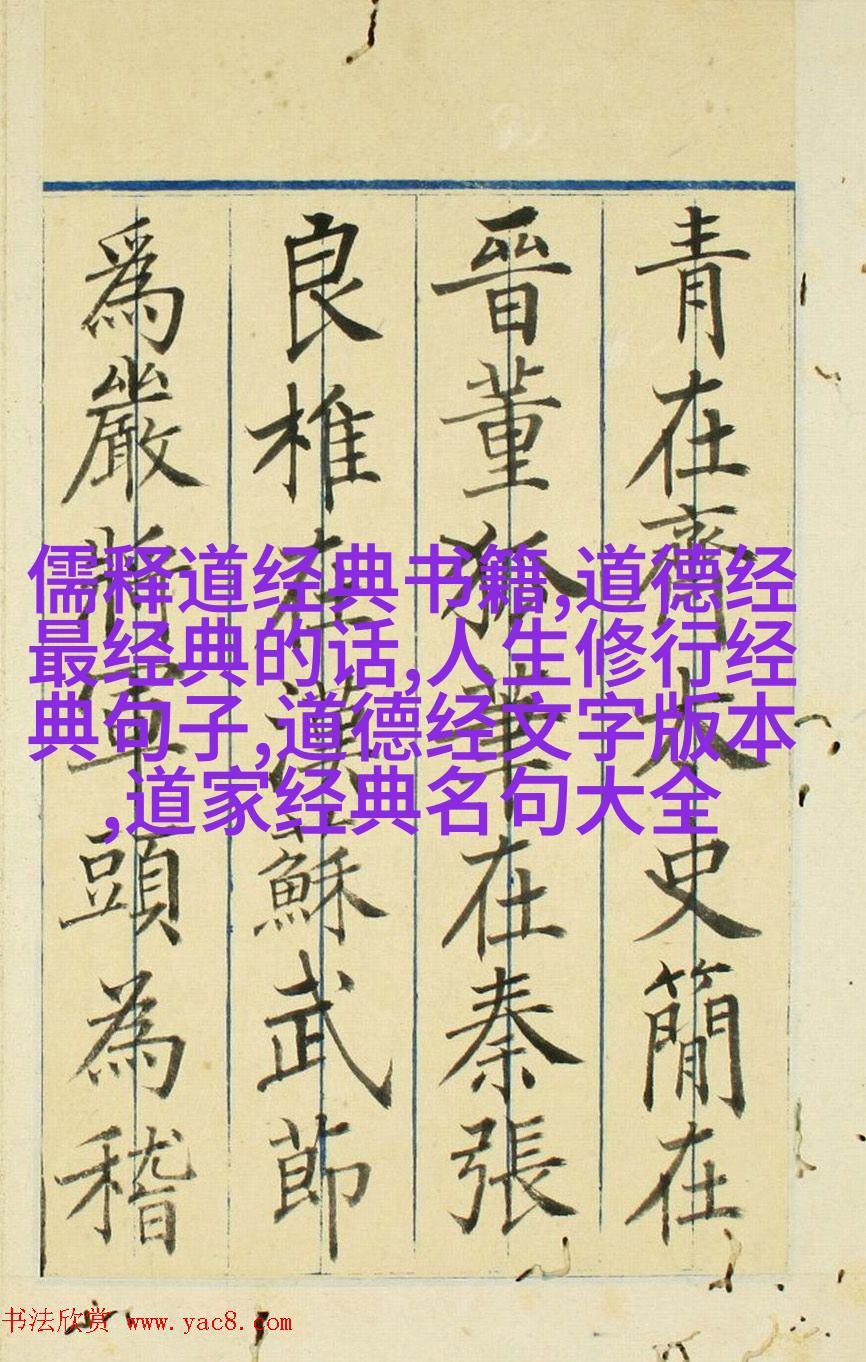 青在齊太史簡在
晉董狐筆在秦張
良椎在漢蘇武節
爲嚴將軍頭為稽
儒释道经典书籍,道德经
最经典的话,人生修行经
典句子,道德经文字版本
,道家经典名句大全
书法欣赏 www.yac8.com